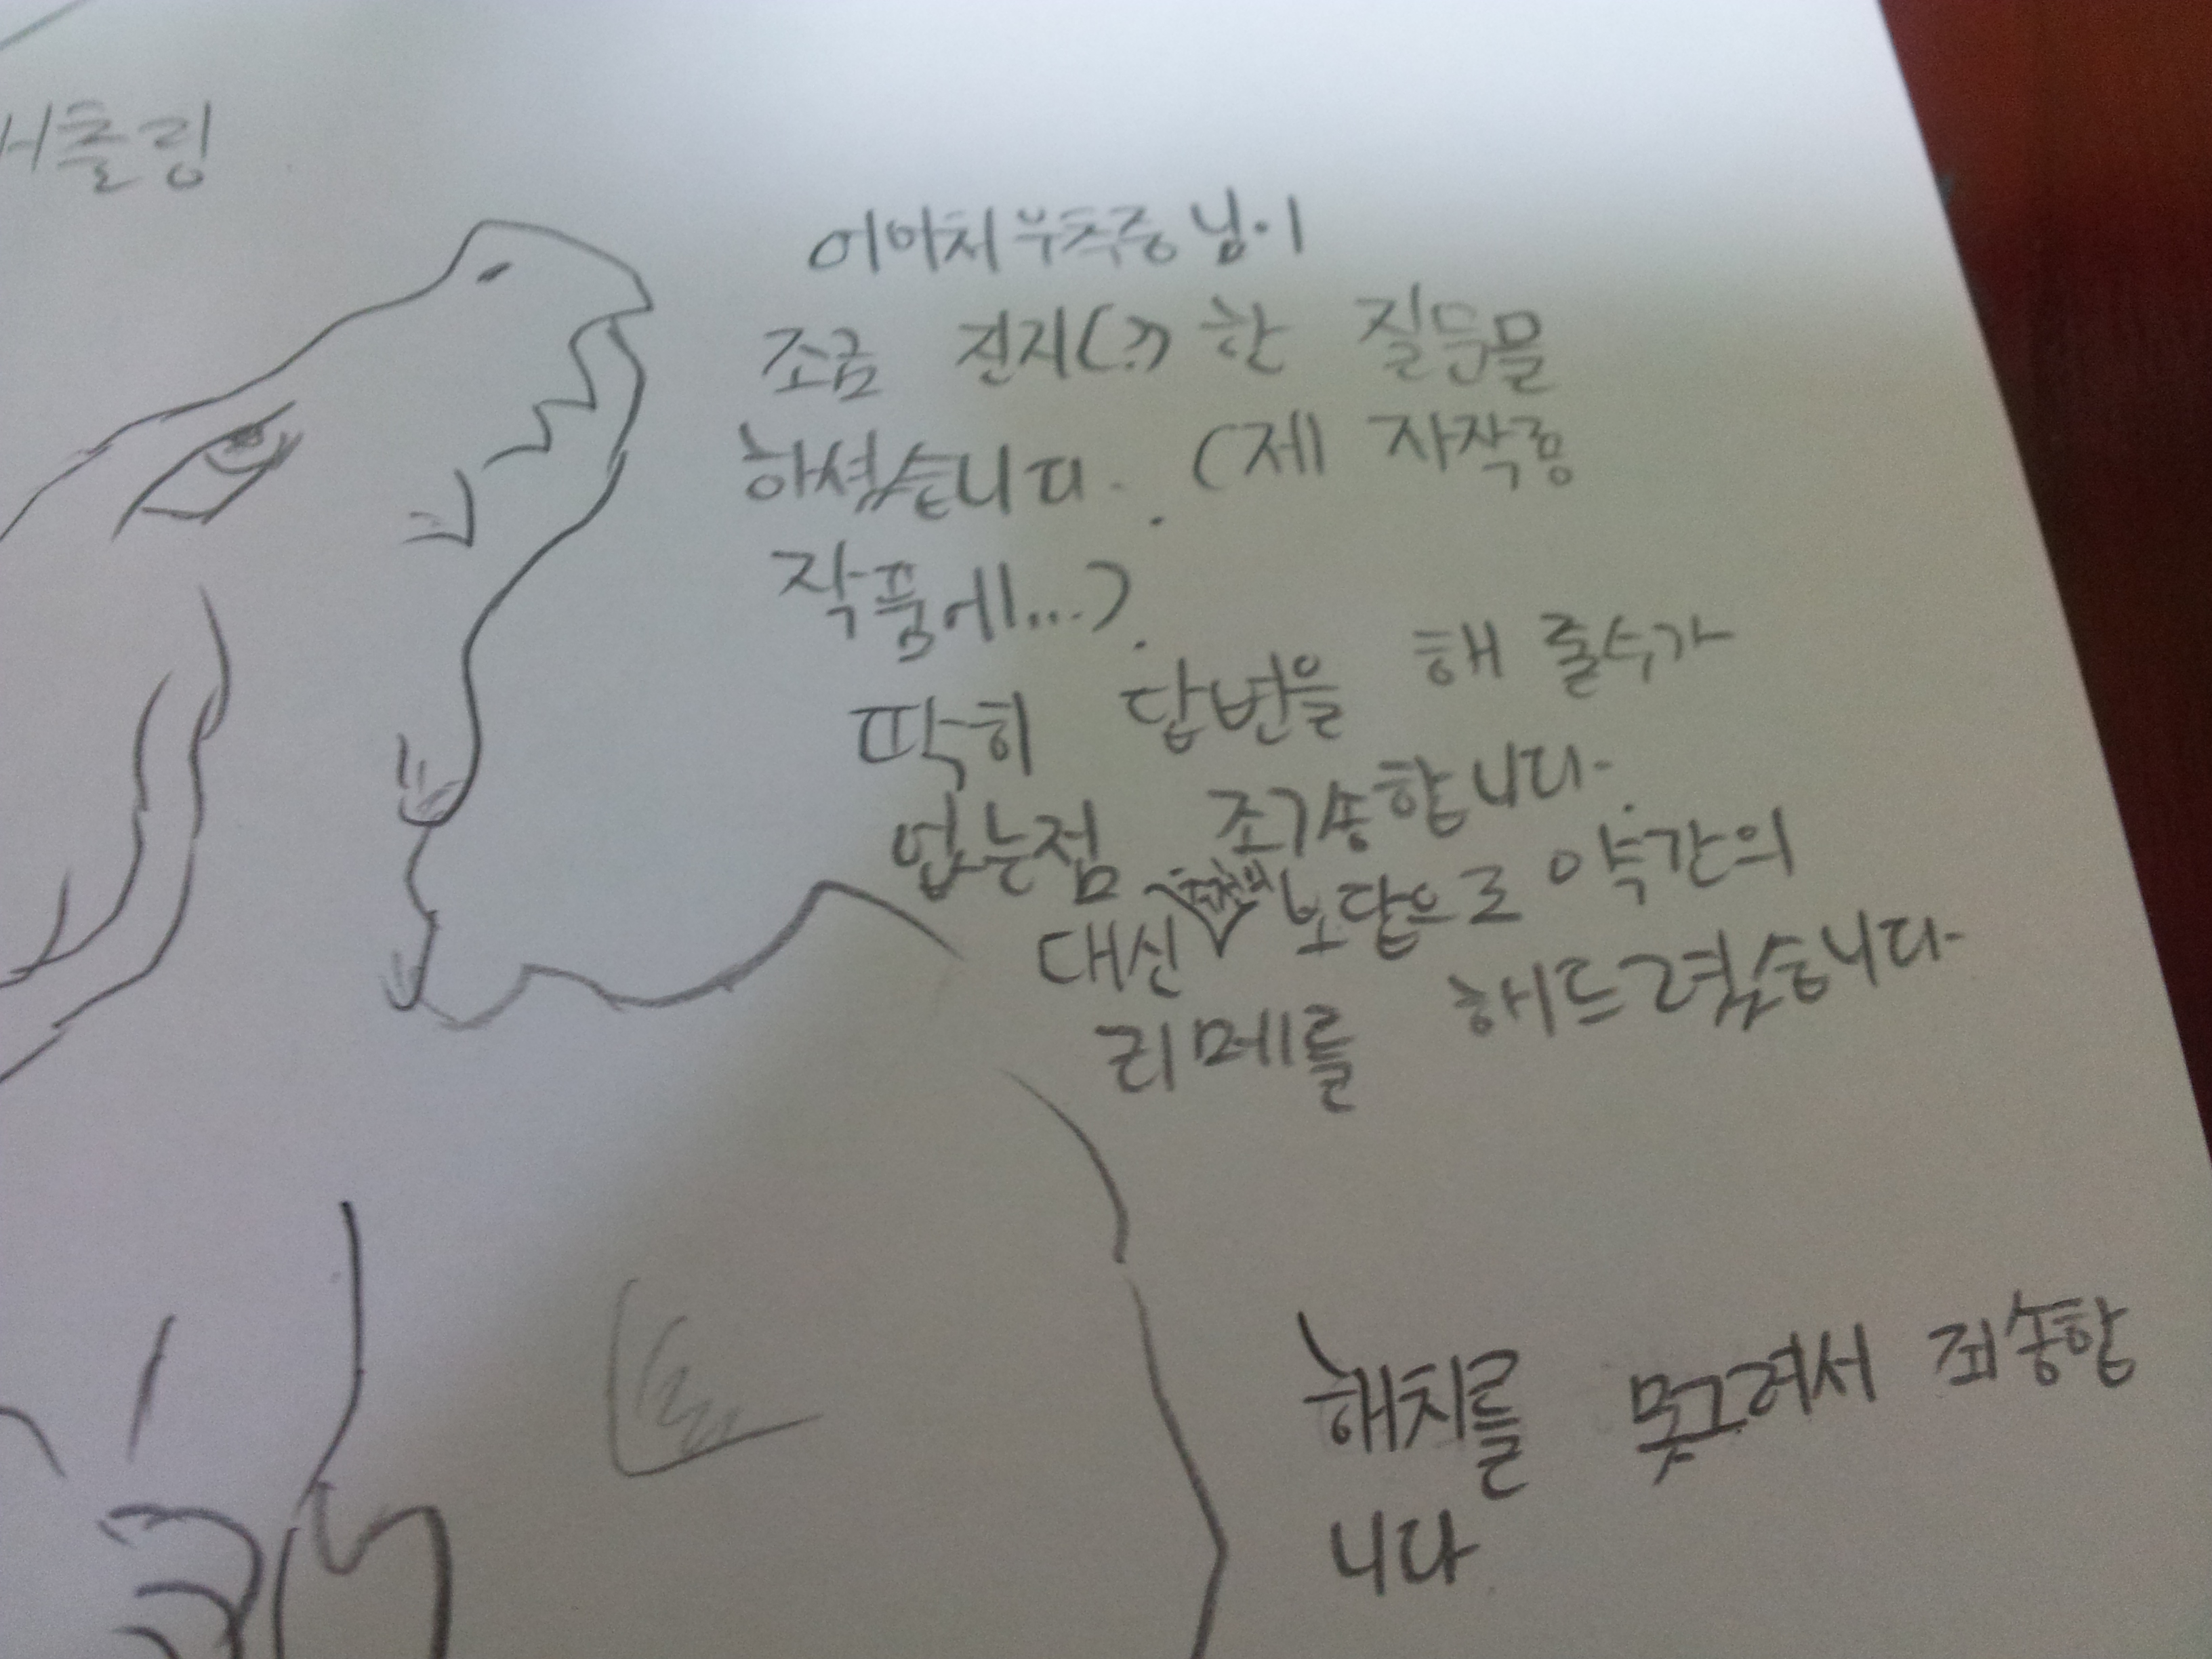 츌링
님이
조금 진지(?)한 질문물
하셨습니다. (제 자작룡
작품에...).
딱히 답변을 해 줄수가
없는점 조송합니다.
대신 보답으로 약간의
리메를 해드렸습니다.
해치를 못그려서 죄송합
니다